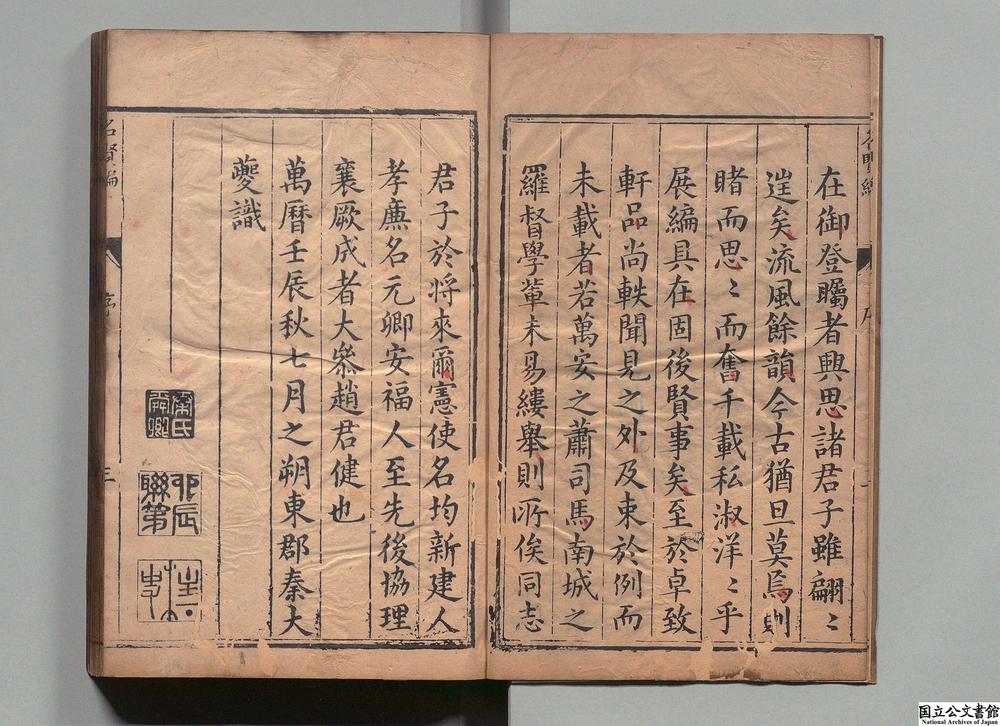 在御登矚者興思諸君子雖翩〻
逞矣流風餘韻今古猶旦莫焉則
睹而思〻而奮千載私淑洋〻乎
展編具在固後賢事矣至於卓致
軒品尚軼聞見之外及束於例而
未載者若萬安之蕭司馬南城之
羅督學輩未易縷舉則所俟同志
君子於將來爾憲使名均新建人
孝廉名元卿安福人至先後協理
襄厥成者大叅趙君健也
萬曆壬辰秋七月之朔東郡秦大
夔識
名賢編
序
三
秦氏舜卿
聯第
国立公文書館
National Archives of Japan